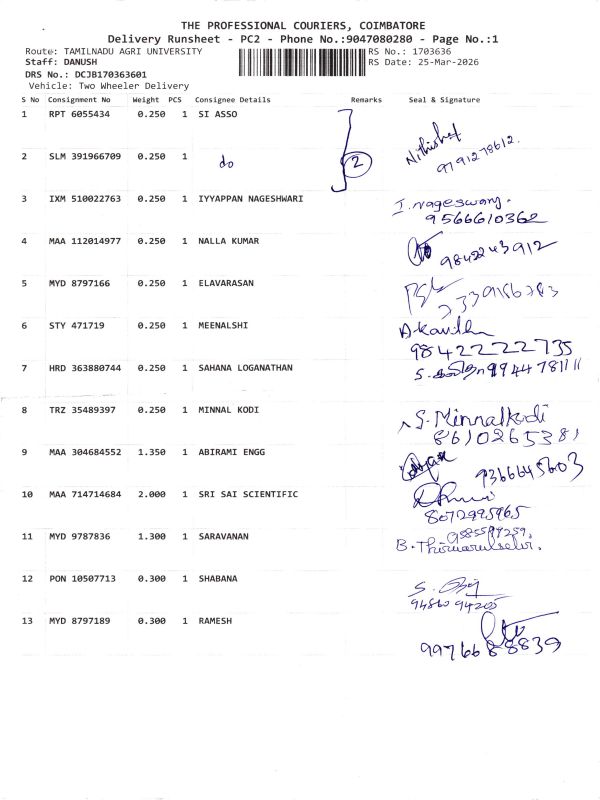 THE PROFESSIONAL COURIERS, COIMBATORE
Delivery Runsheet - PC2 - Phone No.:9047080280 - Page No.:1
Route: TAMILNADU AGRI UNIVERSITY RS No.: 1703636
Staff: DANUSH RS Date: 25-Mar-2026
DRS No.: DCJB170363601
Vehicle: Two Wheeler Delivery
S No Consignment No Weight PCS Consignee Details Remarks Seal & Signature
1 RPT 6055434 0.250 1 SI ASSO
2 SLM 391966709 0.250 1 do 2 9791278612.
3 IXM 510022763 0.250 1 IYYAPPAN NAGESHWARI I. nageswari.
9566610362
4 MAA 112014977 0.250 1 NALLA KUMAR 9842243912
5 MYD 8797166 0.250 1 ELAVARASAN
6 STY 471719 0.250 1 MEENALSHI
9842222735
7 HRD 363880744 0.250 1 SAHANA LOGANATHAN
8 TRZ 35489397 0.250 1 MINNAL KODI S. Minnalkodi
8610265381
9 MAA 304684552 1.350 1 ABIRAMI ENGG 9366645603
10 MAA 714714684 2.000 1 SRI SAI SCIENTIFIC
8072995965
11 MYD 9787836 1.300 1 SARAVANAN
B. Thirumarulselvi.
12 PON 10507713 0.300 1 SHABANA
9486094205
13 MYD 8797189 0.300 1 RAMESH
9976688839